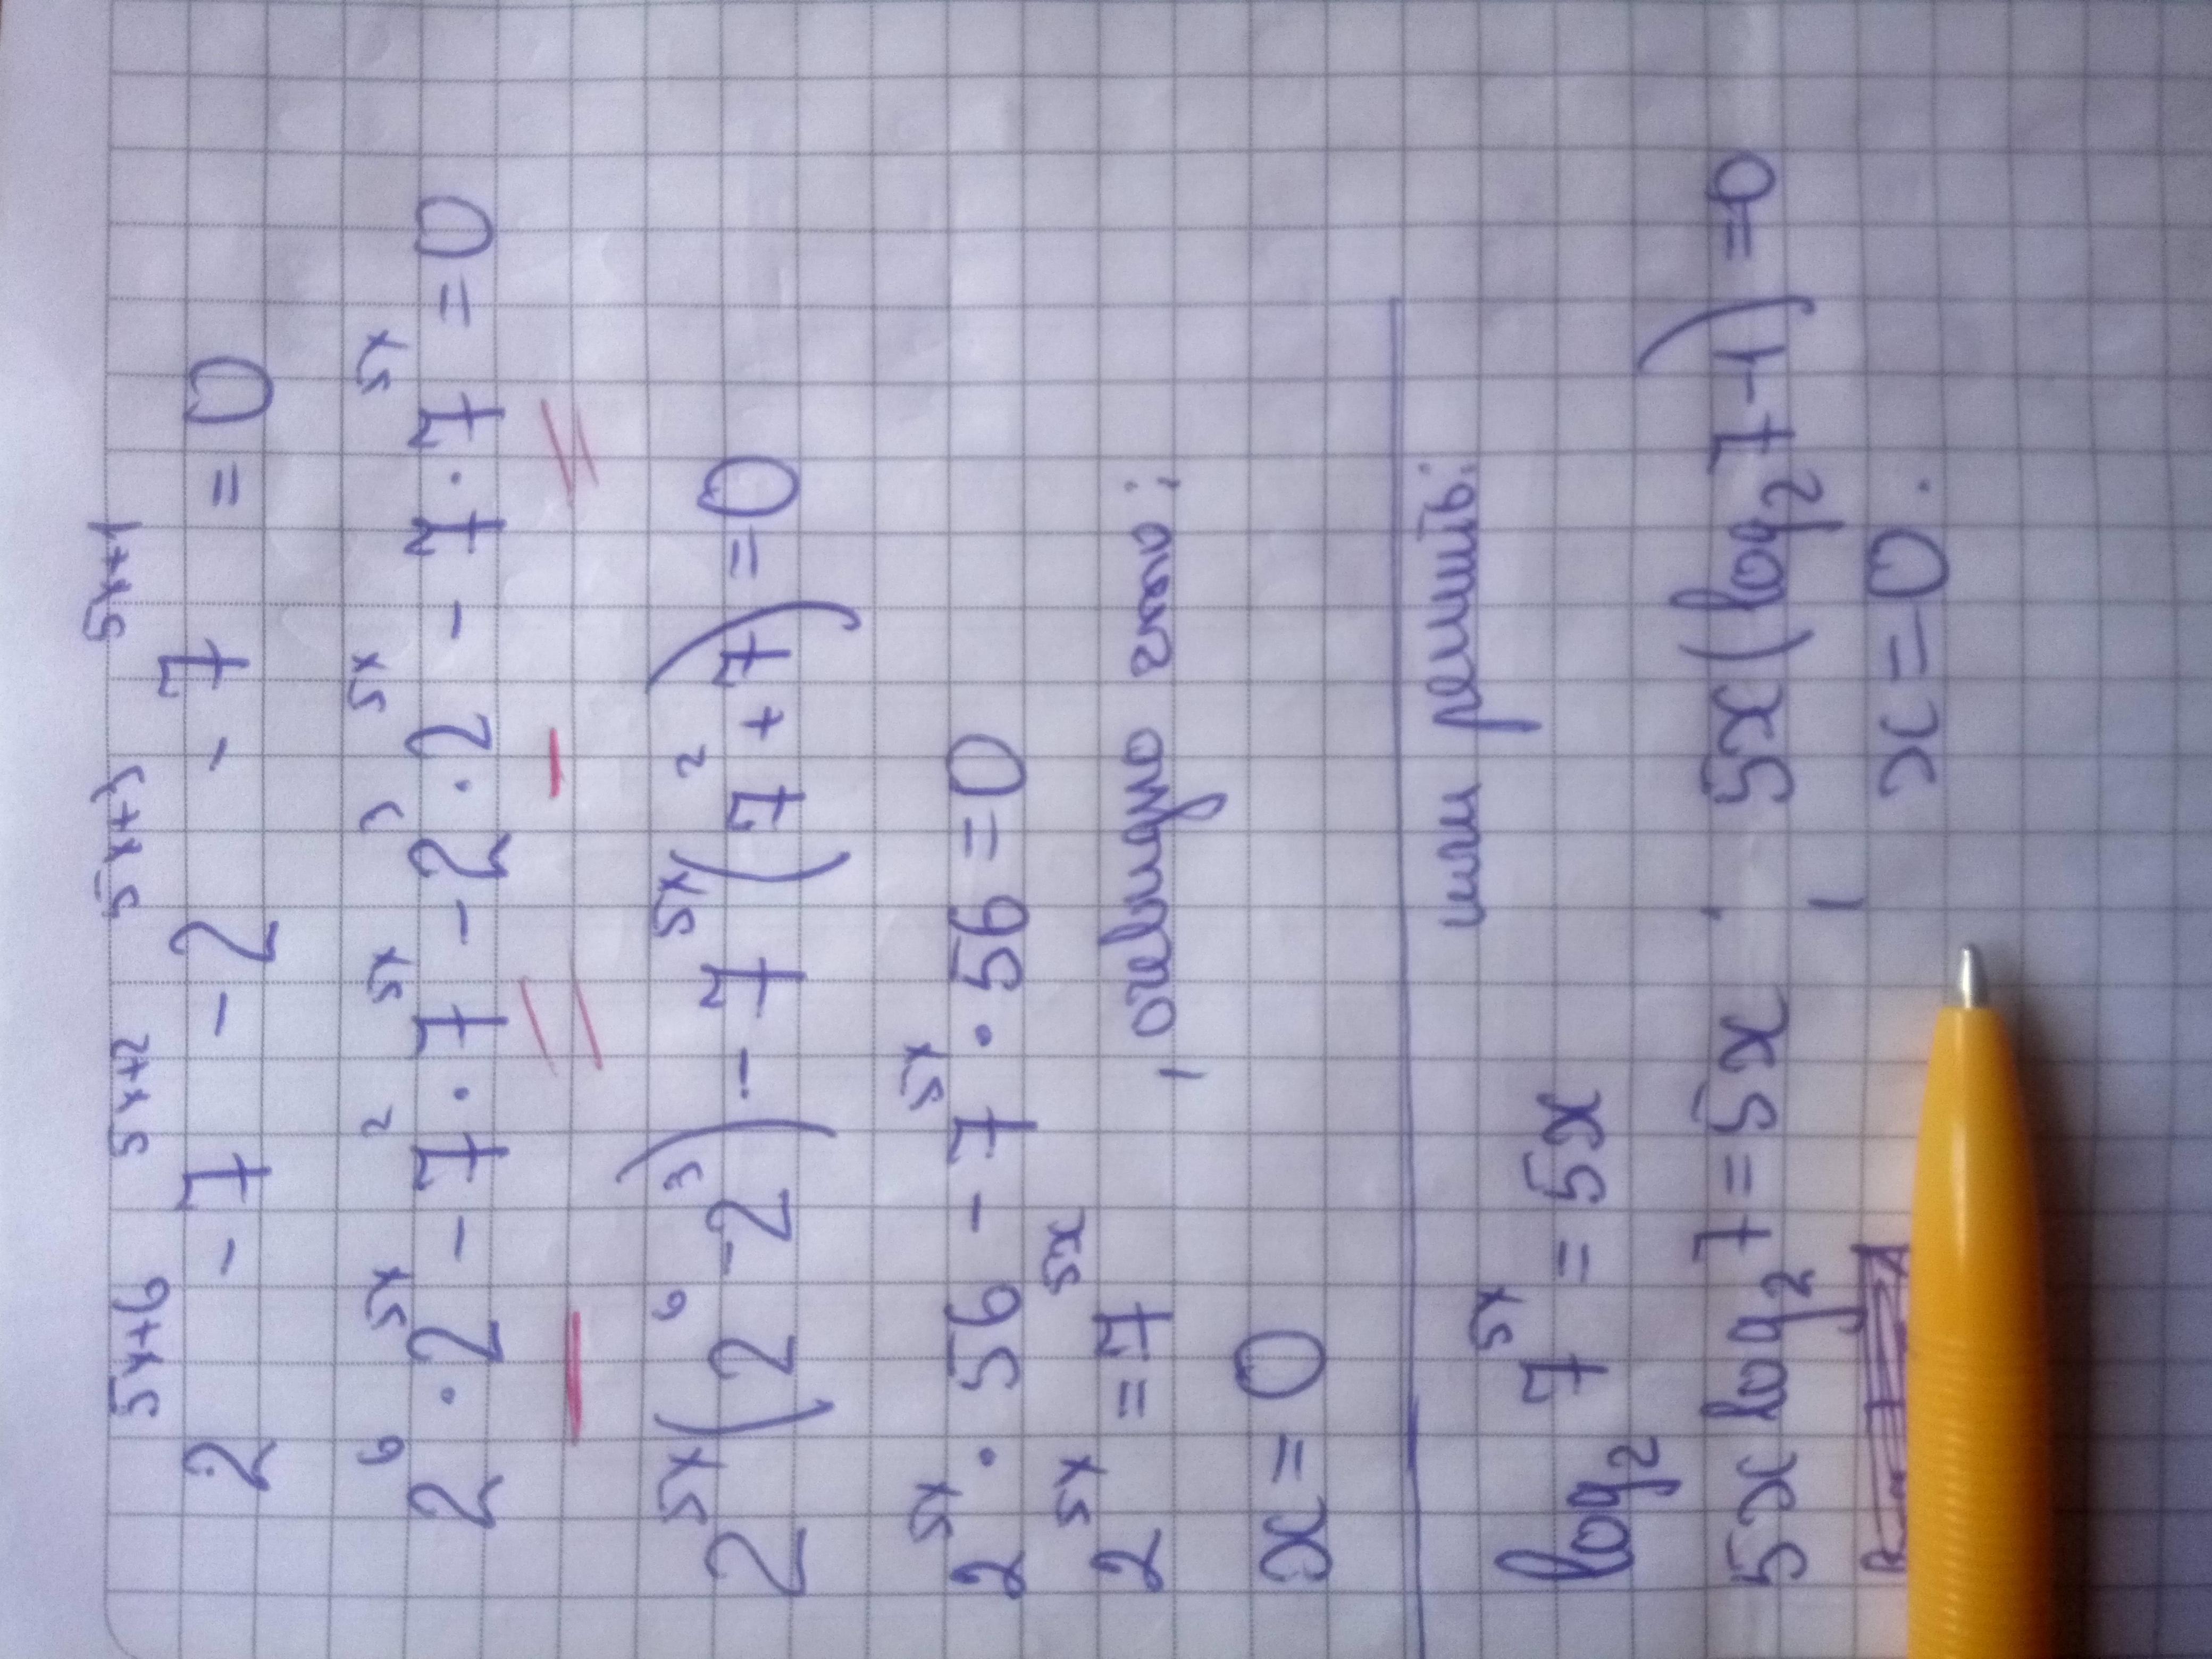 2^(5x+6) - 7^(5x+2) - 2^(5x+3) - 7^(5x+1) = 0
2^6 · 2^(5x) - 7^2 · 7^(5x) - 2^3 · 2^(5x) - 7 · 7^(5x) = 0
2^(5x) (2^6 - 2^3) - 7^(5x) (7^2 + 7) = 0
2^(5x) · 56 - 7^(5x) · 56 = 0
2^(5x) = 7^(5x), очевидно, что:
x = 0
или решить:
log_2 7^(5x) = 5x
5x log_2 7 = 5x, 5x(log_2 7 - 1) = 0
x = 0.